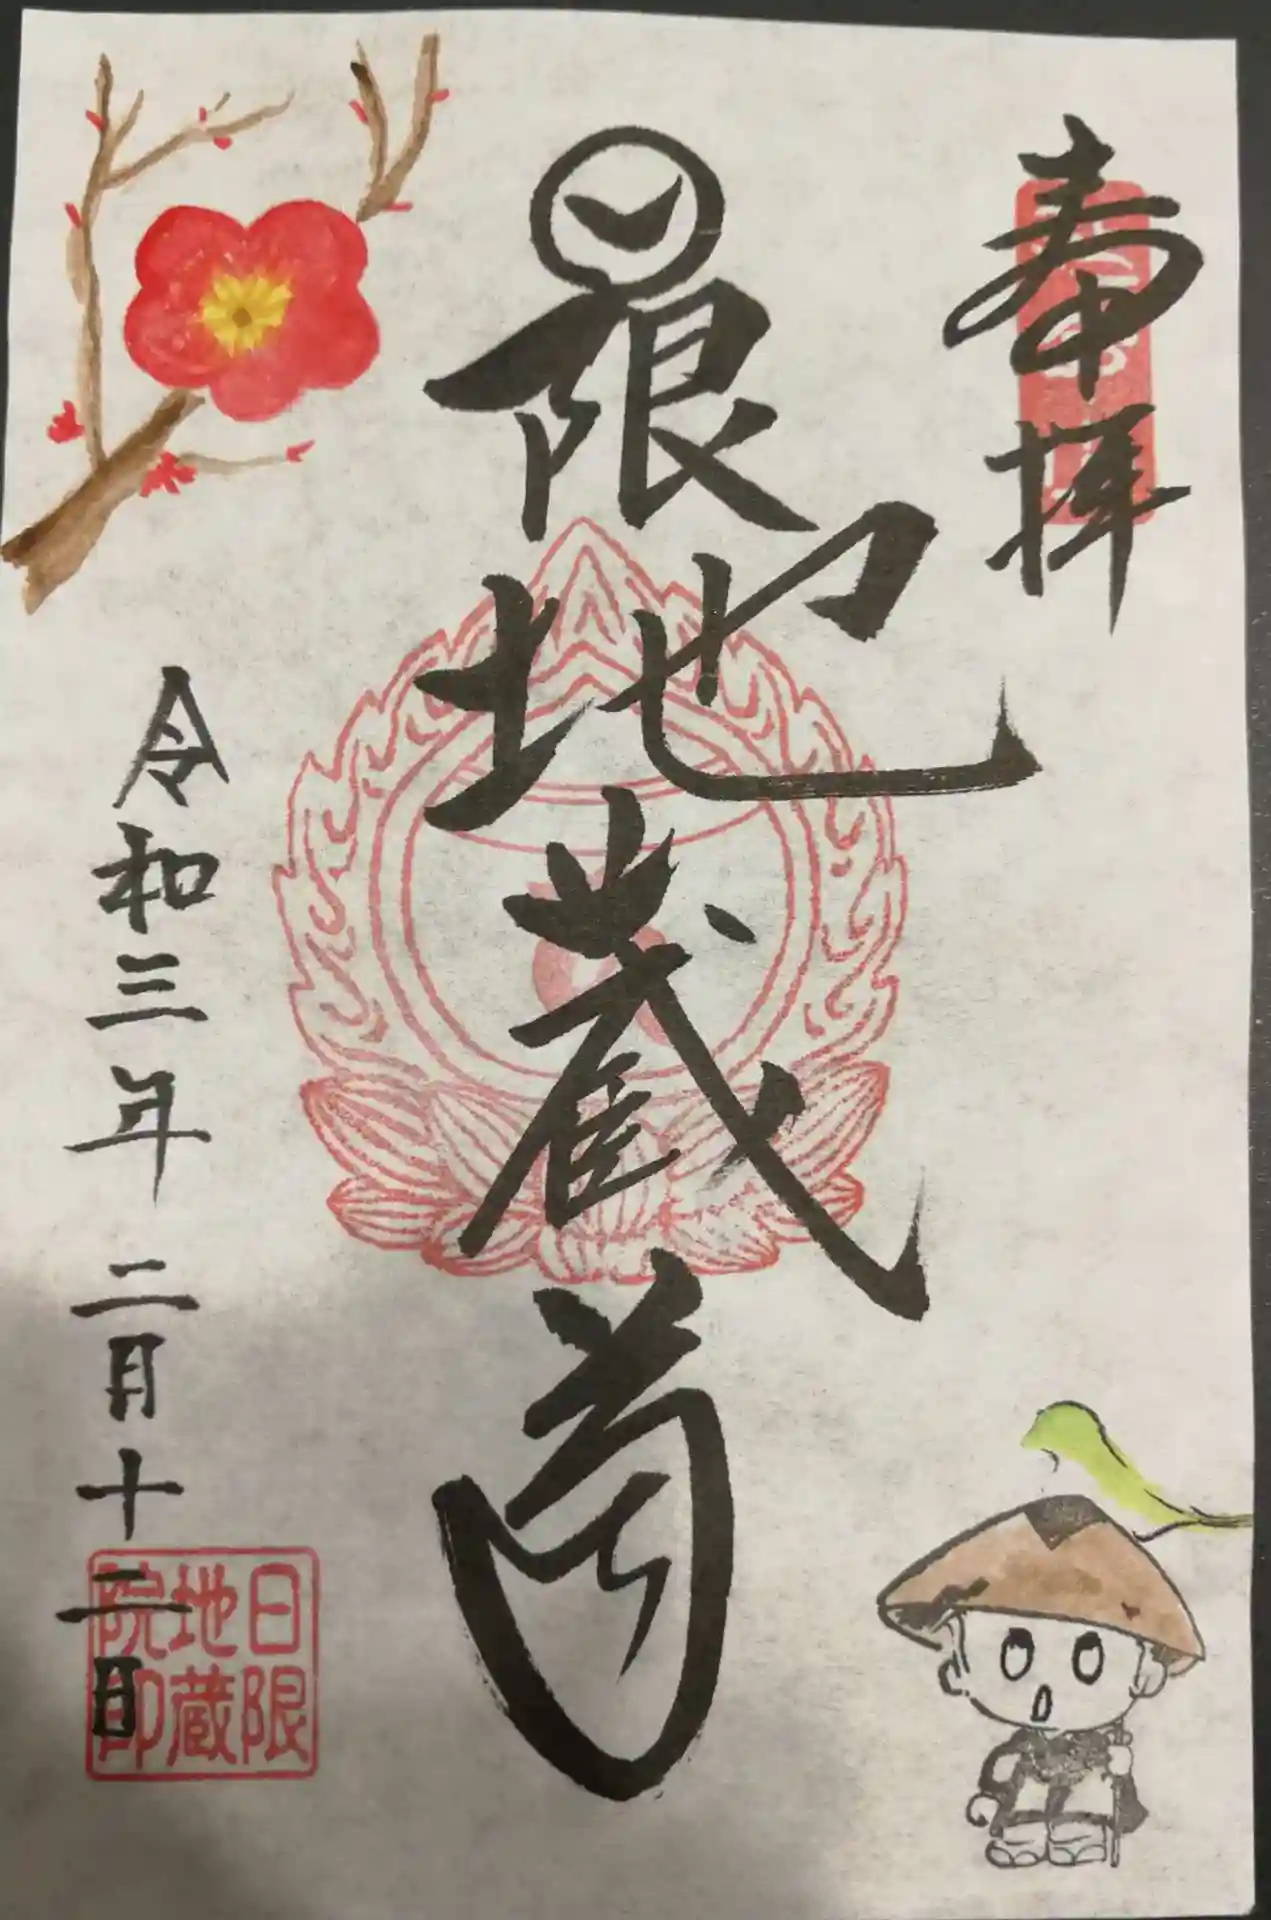 奉拝
日限地蔵尊
令和三年 二月十二日
日限
地蔵
院印